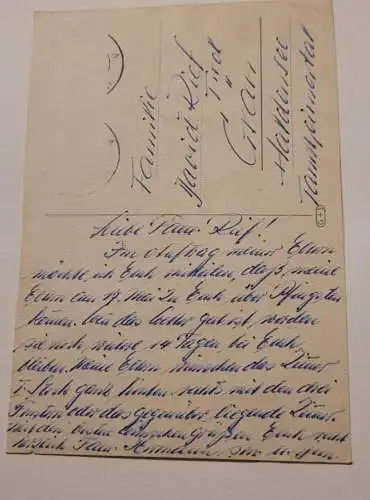 Familie
David Rief
Tirol
Grän
Haldensee
Tannheimertal
Liebe Fam. Rief!
Im Auftrag meiner Eltern
möchte ich Euch mitteilen, daß meine
Eltern am 17. Mai zu Euch über Pfingsten
kommen. Wenn das Wetter gut ist, werden
sie noch weitere 14 Tagen bei Euch
bleiben. Meine Eltern wünschten das Zimmer
I. Stock ganz hinten rechts mit den drei
Fenstern oder das gegenüber liegende Zimmer.
Mit den besten Grüßen Euch
herzlich Fam.